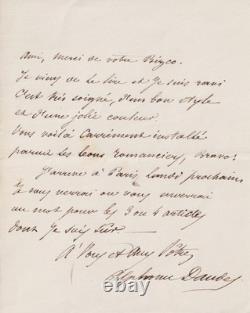 Ami, merci de votre
Je viens de le lire et Je suis ravi
C'est très soigné, d'un bon style
et d'une jolie couleur.
Vous voilà carrément installé
parmi les bons romanciers, Bravo!
J'arrive à Paris lundi prochain
Je vous verrai ou vous enverrai
un mot pour les 3 ou 4 articles
dont Je suis sûr
A Vous et aux Vôtres
Alphonse Daudet